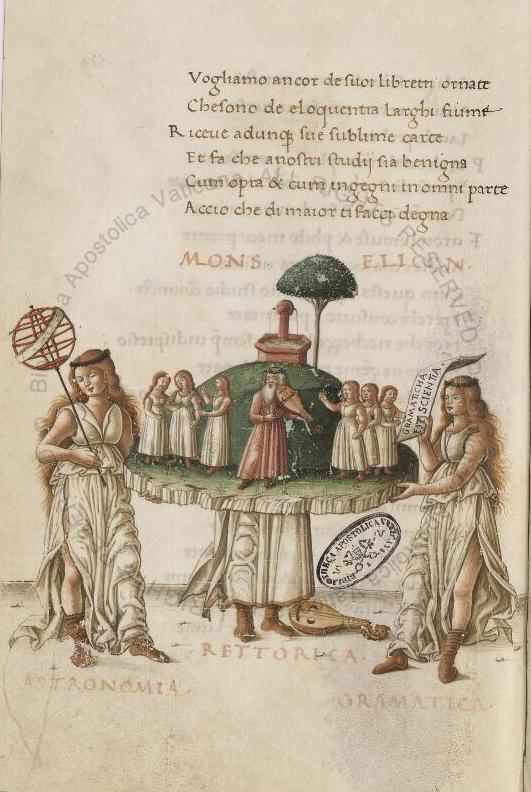 Vogliamo ancor de suoi libretti ornate
Che sono de eloquentia larghi fiumi
Riceue adunq̃ sue sublime carte
Et fa che a nostri studij sia benigna
Cum opra & cum ingegni in omni parte
Accio che di maior ti facci degna
MONS ELICON.
GRAMATICHA
EST SCIENTIA
RETTORICA.
ASTRONOMIA.
GRAMATICA.
Biblioteca Apostolica Vaticana, All Rights RESERVED